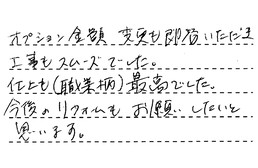 オプション金額 変更も即答いただき
工事もスムーズでした。
仕上も(職業柄)最高でした。
今後のリフォームも お願いしたいと
思います。